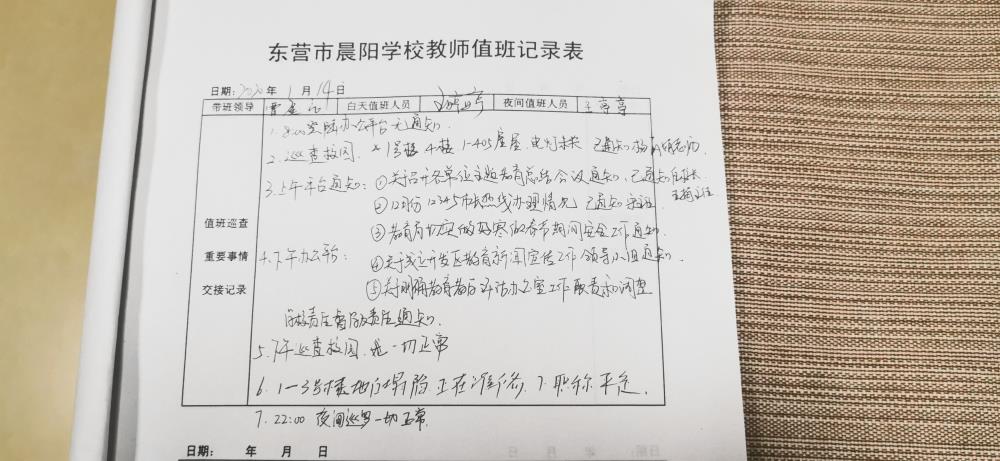 东营市晨阳学校教师值班记录表
日期: 2020年 1月 14日
带班领导 白天值班人员 夜间值班人员
值班巡查
重要事情
交接记录
1. 8:00 办公平台无通知.
2. 巡查校园. 1号楼 4楼 1-405 电灯未关 已通知
3. 上午平台通知: ①关于召开各单位主题教育总结会议通知, 已通知
②12月份12345市长热线办理情况 已通知
③教育局切实做好寒假春节期间安全工作通知.
4. 下午办公平台: ④关于成立开发区教育新闻宣传工作领导小组通知.
⑤关于明确教育督导评估办公室工作职责和调查
责任督学责任通知.
5. 下午巡查校园. 一切正常
6. 1-3号楼 正在准备. 7. 职称
7. 22:00 夜间巡逻一切正常.
日期: 年 月 日
日期: 年 月 日